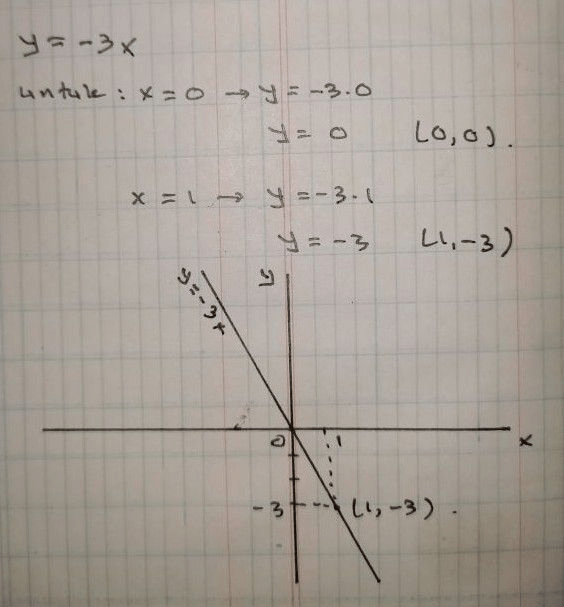 y = -3x
untuk : x = 0 → y = -3.0
y = 0 (0,0).
x = 1 → y = -3.1
y = -3 (1,-3)
y
y = -3x
0 1 x
-3 (1,-3).